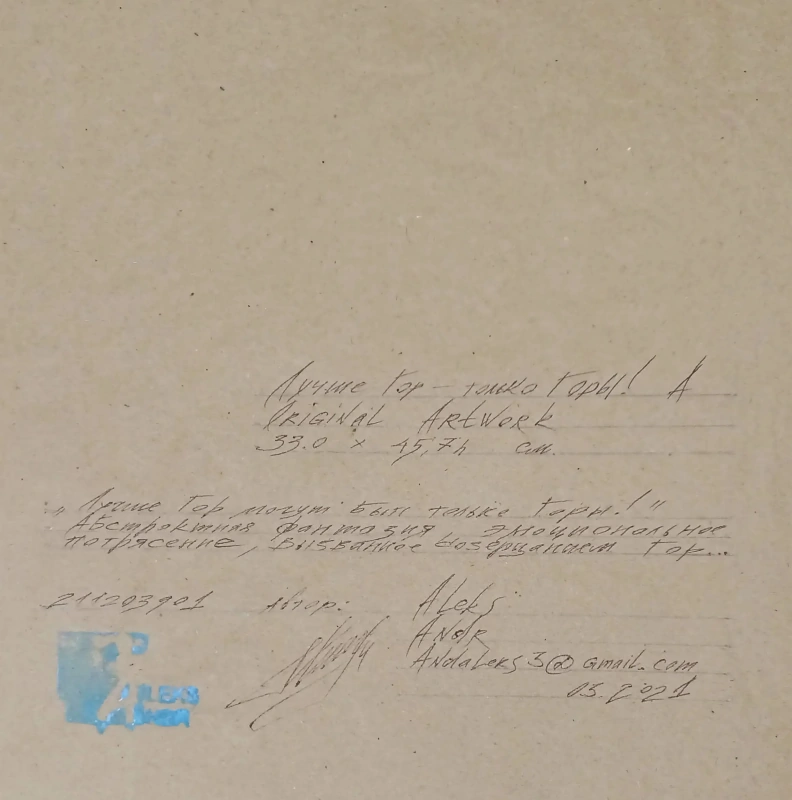 Лучше Гор – только Горы! А
Original Artwork
33.0 × 45,7h см.
„Лучше Гор могут быть только Горы!"
Абстрактная фантазия, эмоциональное
потрясение, вызванное созерцанием Гор...
211203901 Автор:
Aleks
Andr
Andaleks3@gmail.com
03.2021
ALEKS